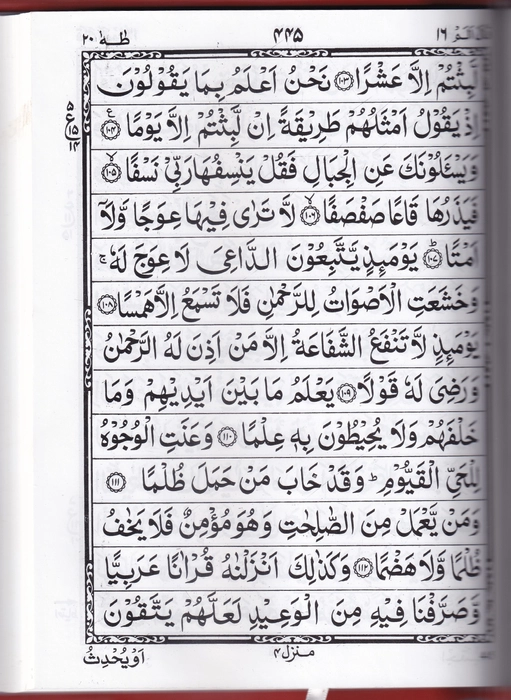 طٰهٰ ٢٠ ٤٤٥ قَالَ اَلَمْ ١٦
لَّبِثْتُمْ اِلَّا عَشْرًا ﴿١٠٣﴾ نَحْنُ اَعْلَمُ بِمَا يَقُوْلُوْنَ
اِذْ يَقُوْلُ اَمْثَلُهُمْ طَرِيْقَةً اِنْ لَّبِثْتُمْ اِلَّا يَوْمًا ﴿١٠٤﴾ ع
وَيَسْـَٔلُوْنَكَ عَنِ الْجِبَالِ فَقُلْ يَنْسِفُهَا رَبِّيْ نَسْفًا ﴿١٠٥﴾
فَيَذَرُهَا قَاعًا صَفْصَفًا ﴿١٠٦﴾ لَّا تَرٰى فِيْهَا عِوَجًا وَّلَآ
اَمْتًا ﴿١٠٧﴾ يَوْمَىِٕذٍ يَّتَّبِعُوْنَ الدَّاعِيَ لَا عِوَجَ لَهٗ ۚ
وَخَشَعَتِ الْاَصْوَاتُ لِلرَّحْمٰنِ فَلَا تَسْمَعُ اِلَّا هَمْسًا ﴿١٠٨﴾
يَوْمَىِٕذٍ لَّا تَنْفَعُ الشَّفَاعَةُ اِلَّا مَنْ اَذِنَ لَهُ الرَّحْمٰنُ
وَرَضِيَ لَهٗ قَوْلًا ﴿١٠٩﴾ يَعْلَمُ مَا بَيْنَ اَيْدِيْهِمْ وَمَا
خَلْفَهُمْ وَلَا يُحِيْطُوْنَ بِهٖ عِلْمًا ﴿١١٠﴾ وَعَنَتِ الْوُجُوْهُ
لِلْحَيِّ الْقَيُّوْمِ ؕ وَقَدْ خَابَ مَنْ حَمَلَ ظُلْمًا ﴿١١١﴾
وَمَنْ يَّعْمَلْ مِنَ الصّٰلِحٰتِ وَهُوَ مُؤْمِنٌ فَلَا يَخٰفُ
ظُلْمًا وَّلَا هَضْمًا ﴿١١٢﴾ وَكَذٰلِكَ اَنْزَلْنٰهُ قُرْاٰنًا عَرَبِيًّا
وَّصَرَّفْنَا فِيْهِ مِنَ الْوَعِيْدِ لَعَلَّهُمْ يَتَّقُوْنَ
منزل ٤
اَوْ يُحْدِثُ